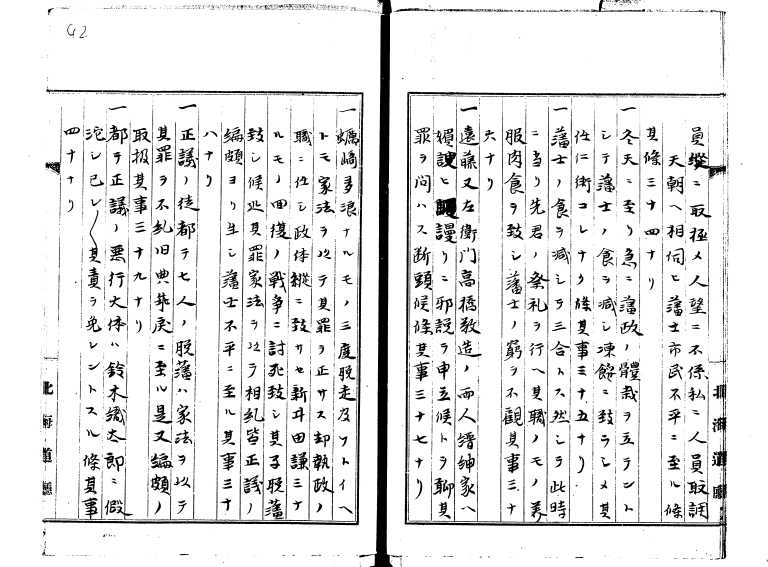 員縦ニ取極メ人望ニ不係私ニ人員取調
天朝ヘ相伺ヒ藩士市民不平ニ至ル條
其條三十四ナリ
一冬天ニ至リ急ニ藩政ノ體裁ヲ立テント
シテ藩士ノ食ヲ減シ凍餒ニ致ラシメ其
任ニ衝コレナク條其事三十五ナリ
一藩士ノ食ヲ減シテ三合トス然シテ此時
ニ当リ先君ノ祭礼ヲ行ヘ其職ノモノ美
服肉食ヲ致シ藩士ノ窮ヲ不觀其事三十
六ナリ
一遠藤又左衛門高橋敬造ノ両人縉紳家ヘ
媚諛ヒ謾リニ邪説ヲ申立候トヲ聊其
罪ヲ問ハス断頭候條其事三十七ナリ
一蠣崎多浪ナルモノ三度脱走及フトイヘ
トモ家法ヲ以テ其罪ヲ正サス却執政ノ
職ニ任シ政体縦ニ致サセ新井田謙三ナ
ルモノ回復ノ戦争ニ討死致シ其子脱藩
致シ候処其罪家法ヲ以テ相糺皆正議ノ
編頗ヨリ生シ藩士不平ニ至ル其事三十
八ナリ
一正議ノ徒都テ七人ノ脱藩ハ家法ヲ以テ
其罪ヲ不糺旧典弊戻ニ至ル是又編頗ノ
取扱其事三十九ナリ
一都テ正議ノ悪行大体ハ鈴木織太郎ニ假
沱シ已レ〳〵其責ヲ免レントスル條其事
四十ナリ
北海道廳
北海道廳
42